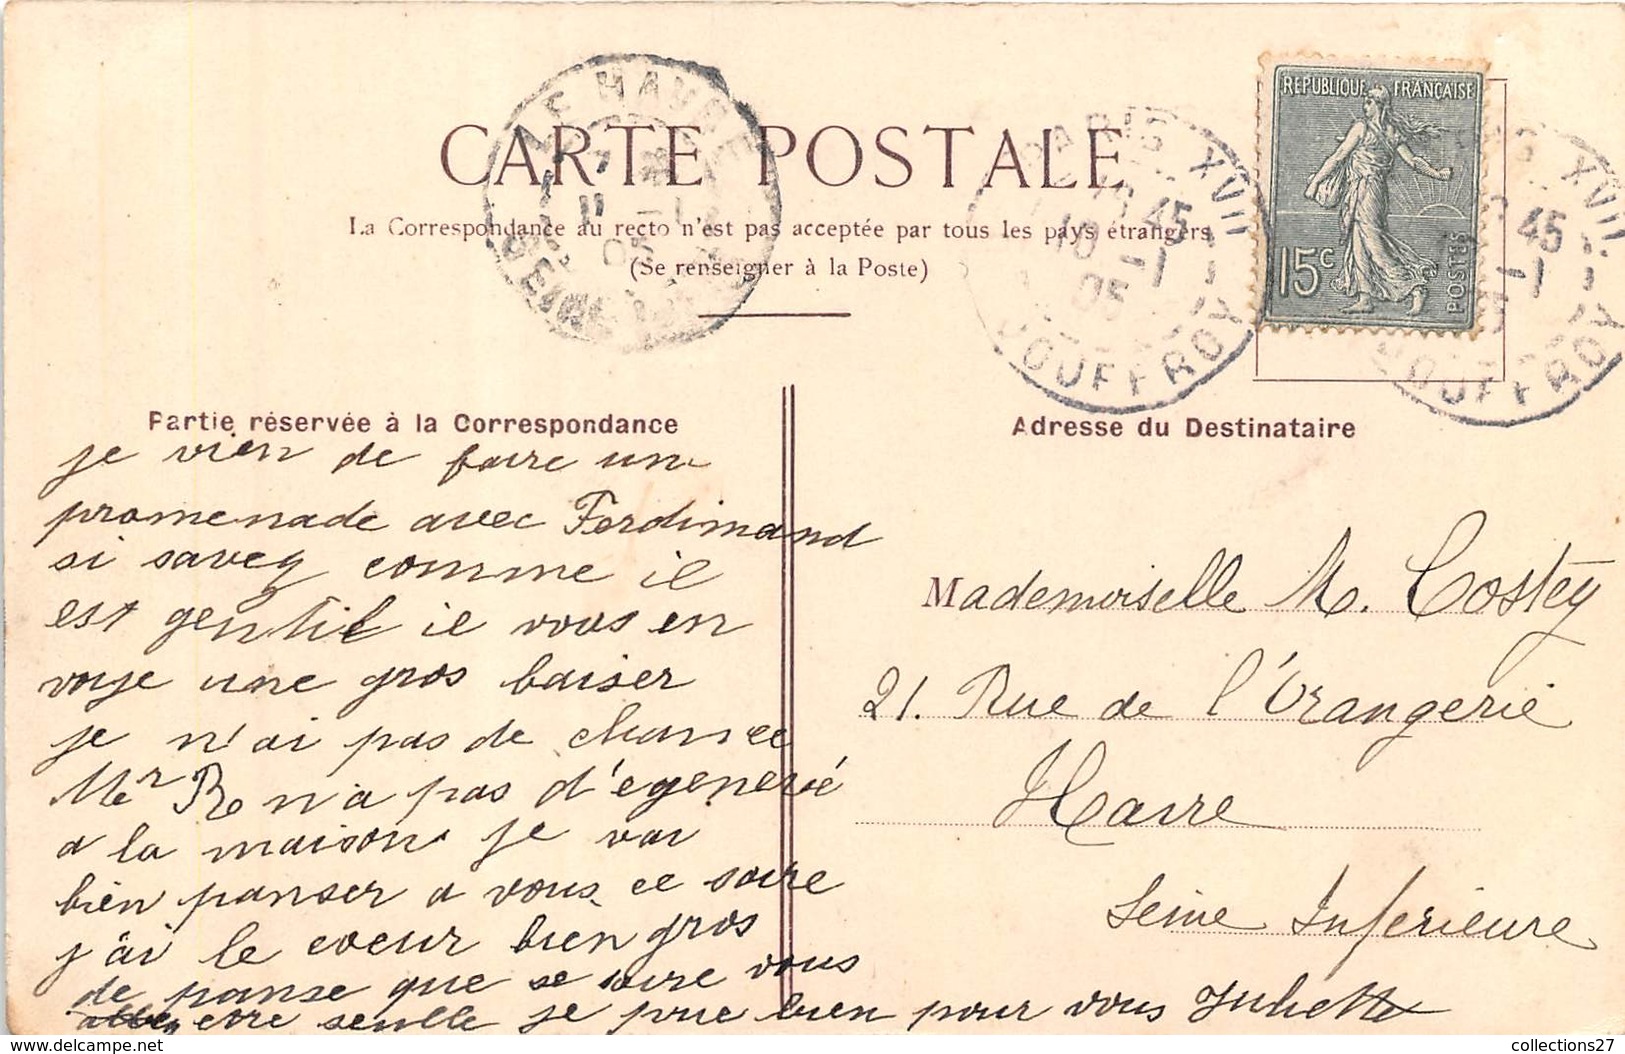 CARTE POSTALE
La Correspondance au recto n'est pas acceptée par tous les pays étrangers
(Se renseigner à la Poste)
LE HAVRE
7
11 -1
05
SEINE
PARIS XVII
45
10 -1
05
JOUFFROY
REPUBLIQUE FRANÇAISE
15c
POSTES
XVII
45
-1
JOUFFROY
Partie réservée à la Correspondance
je vien de faire un
promenade avec Ferdimand
si saveq comme il
est gentil il vous en
voye une gros baiser
je n'ai pas de chance
Mer Ro n'a pas d'egenerié
a la maison je vai
bien panser a vous ce soire
j'ai le coeur bien gros
de panse que se soire vous
etre seulle je prie bien pour vous Juliette
Adresse du Destinataire
Mademoiselle M. Costey
21. Rue de l'Orangerie
Havre
Seine Inferieure
collections27